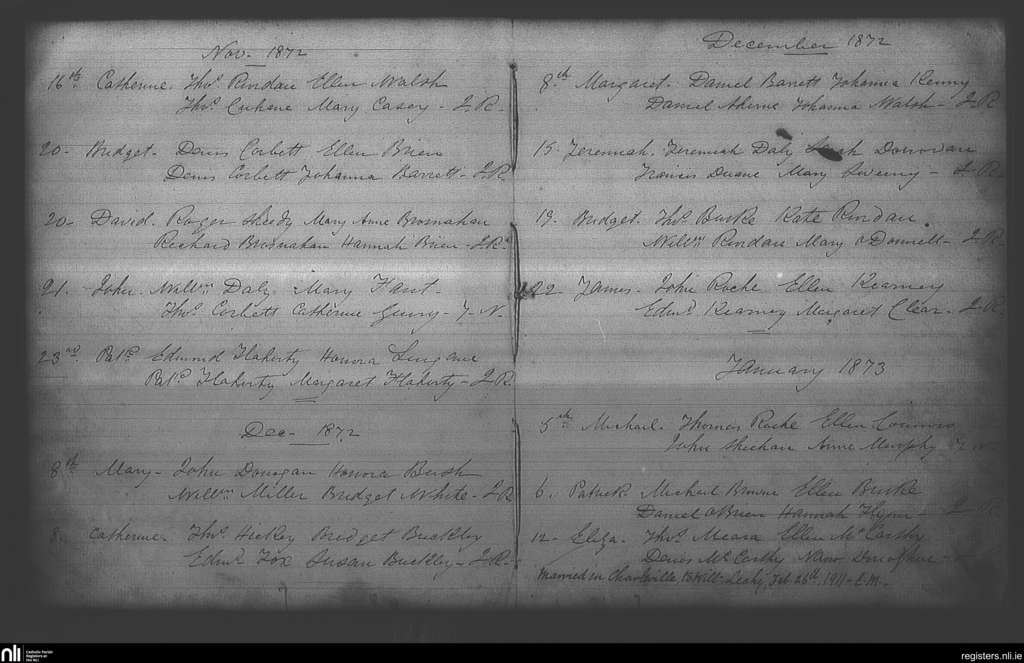 Nov. 1872
16th Catherine. Thos. Rindau Ellen Walsh
Thos. Cuhane Mary Casey - J.R.
20- Bridget. Denis Corbett Ellen Brien
Denis Corbett Johanna Barrett - J.R.
20- David. Roger Sheedy Mary Anne Brosnahan
Richard Brosnahan Hannah Brien - J.R.
21. John. Willm Daly Mary Hart -
Thos. Corbett Catherine - T. N.
23rd. Patk. Edmund Flaherty Honora Lingane
Patk. Flaherty Margaret Flaherty - J.R.
Dec - 1872
8th Mary - John Donogan Honora Bush
Willm Miller Bridget White - J.R.
8. Catherine. Thos. Hickey Bridget Buckley
Edmd. Fox Susan Buckley - J.R.
December 1872
8th Margaret. Daniel Barrett Johanna Kenny
Daniel Aherne Johanna Walsh - J.R.
15. Jeremiah. Jeremiah Daly Donovan
Francis Duane Mary Sweeny - J.R.
19. Bridget. Thos. Burke Kate Rindau.
Willm Rindau Mary O Donnell - J.R.
22 James. John Roche Ellen Kearney
Edmd. Kearney Margaret Clear. J.R.
January 1873
5th Michael. Thomas Roche Ellen Connors
John Sheehan Anne Murphy T. N.
6. Patrick. Michael Browne Ellen Burke
Daniel OBrien Hannah Flynn -
12- Eliza. Thos. Meara Ellen McCarthy
Denis McCarthy Donoghue -
Married in Charleville to Willm Leahy, Feb 26th, 1911 - E.M.
nli
Catholic Parish
Registers at
the NLI
registers.nli.ie